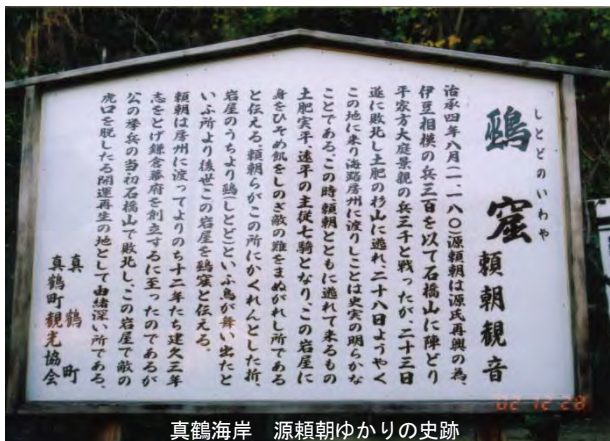 しとどのいわや
鵐窟 頼朝観音
治承四年八月(一一八〇)源頼朝は源氏再興の為、
伊豆相模の兵三百を以て石橋山に陣どり
平家方大庭景親の兵三千と戦ったが、二十三日
遂に敗北し土肥の杉山に逃れ、二十八日ようやく
この地に来り海路房州に渡りしことは史実の明らかな
ことである、この時、頼朝とともに逃れて来るもの
土肥実平、遠平の主従七騎となり、この岩屋に
身をひそめ飢をしのぎ敵の難をまぬがれし所である
と伝える、頼朝らがこの所にかくれんとした折、
岩屋のうちより鵐(しとど)といふ鳥が舞い出たと
いふ所より後世この岩屋を鵐窟と伝える、
頼朝は房州に渡ってよりのち十二年たち建久三年
志をとげ鎌倉幕府を創立するに至ったのであるが
公の挙兵の当初石橋山で敗北し、この岩屋で敵の
虎口を脱したる開運再生の地として由緒深い所である、
真鶴町
真鶴町観光協会
'02 12 28
真鶴海岸 源頼朝ゆかりの史跡